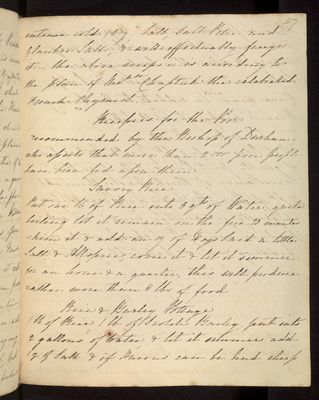 157
extreme cold by Salt, Salt Petre and
Glauber Salts, & will effectually freeze
it. the above receipt is according to
the plan of the celebrated
French
Receipts for the Poor
recommended by the Bishop of Durham
who asserts that more than 2 poor people
have been fed upon them.
Savory Rice
Put one lb of Rice into 3 qts of Water, quite
boiling let it remain on the fire 20 minutes
skim it & add an oz of Hogs lard a little
Salt & Allspice, cover it & let it simmer
for an hour & a quarter, this will produce
rather more than 8 lbs of food
Rice & Barley Potage
1 lb of Rice, 1 lb of Scotch Barley put into
2 gallons of Water & let it simmer add
of Salt & if Onions can be had cheap